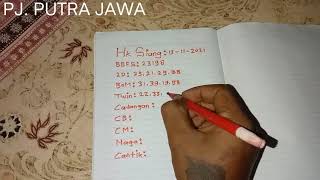 PJ. PUTRA JAWA
Hk Siang: 13-11-2021
BBFS: 23196
2D: 23.21.29.
BoM: 31.39.19.
Twin: 22.33.
Cadangan:
CB:
CM:
Naga:
Cantik: